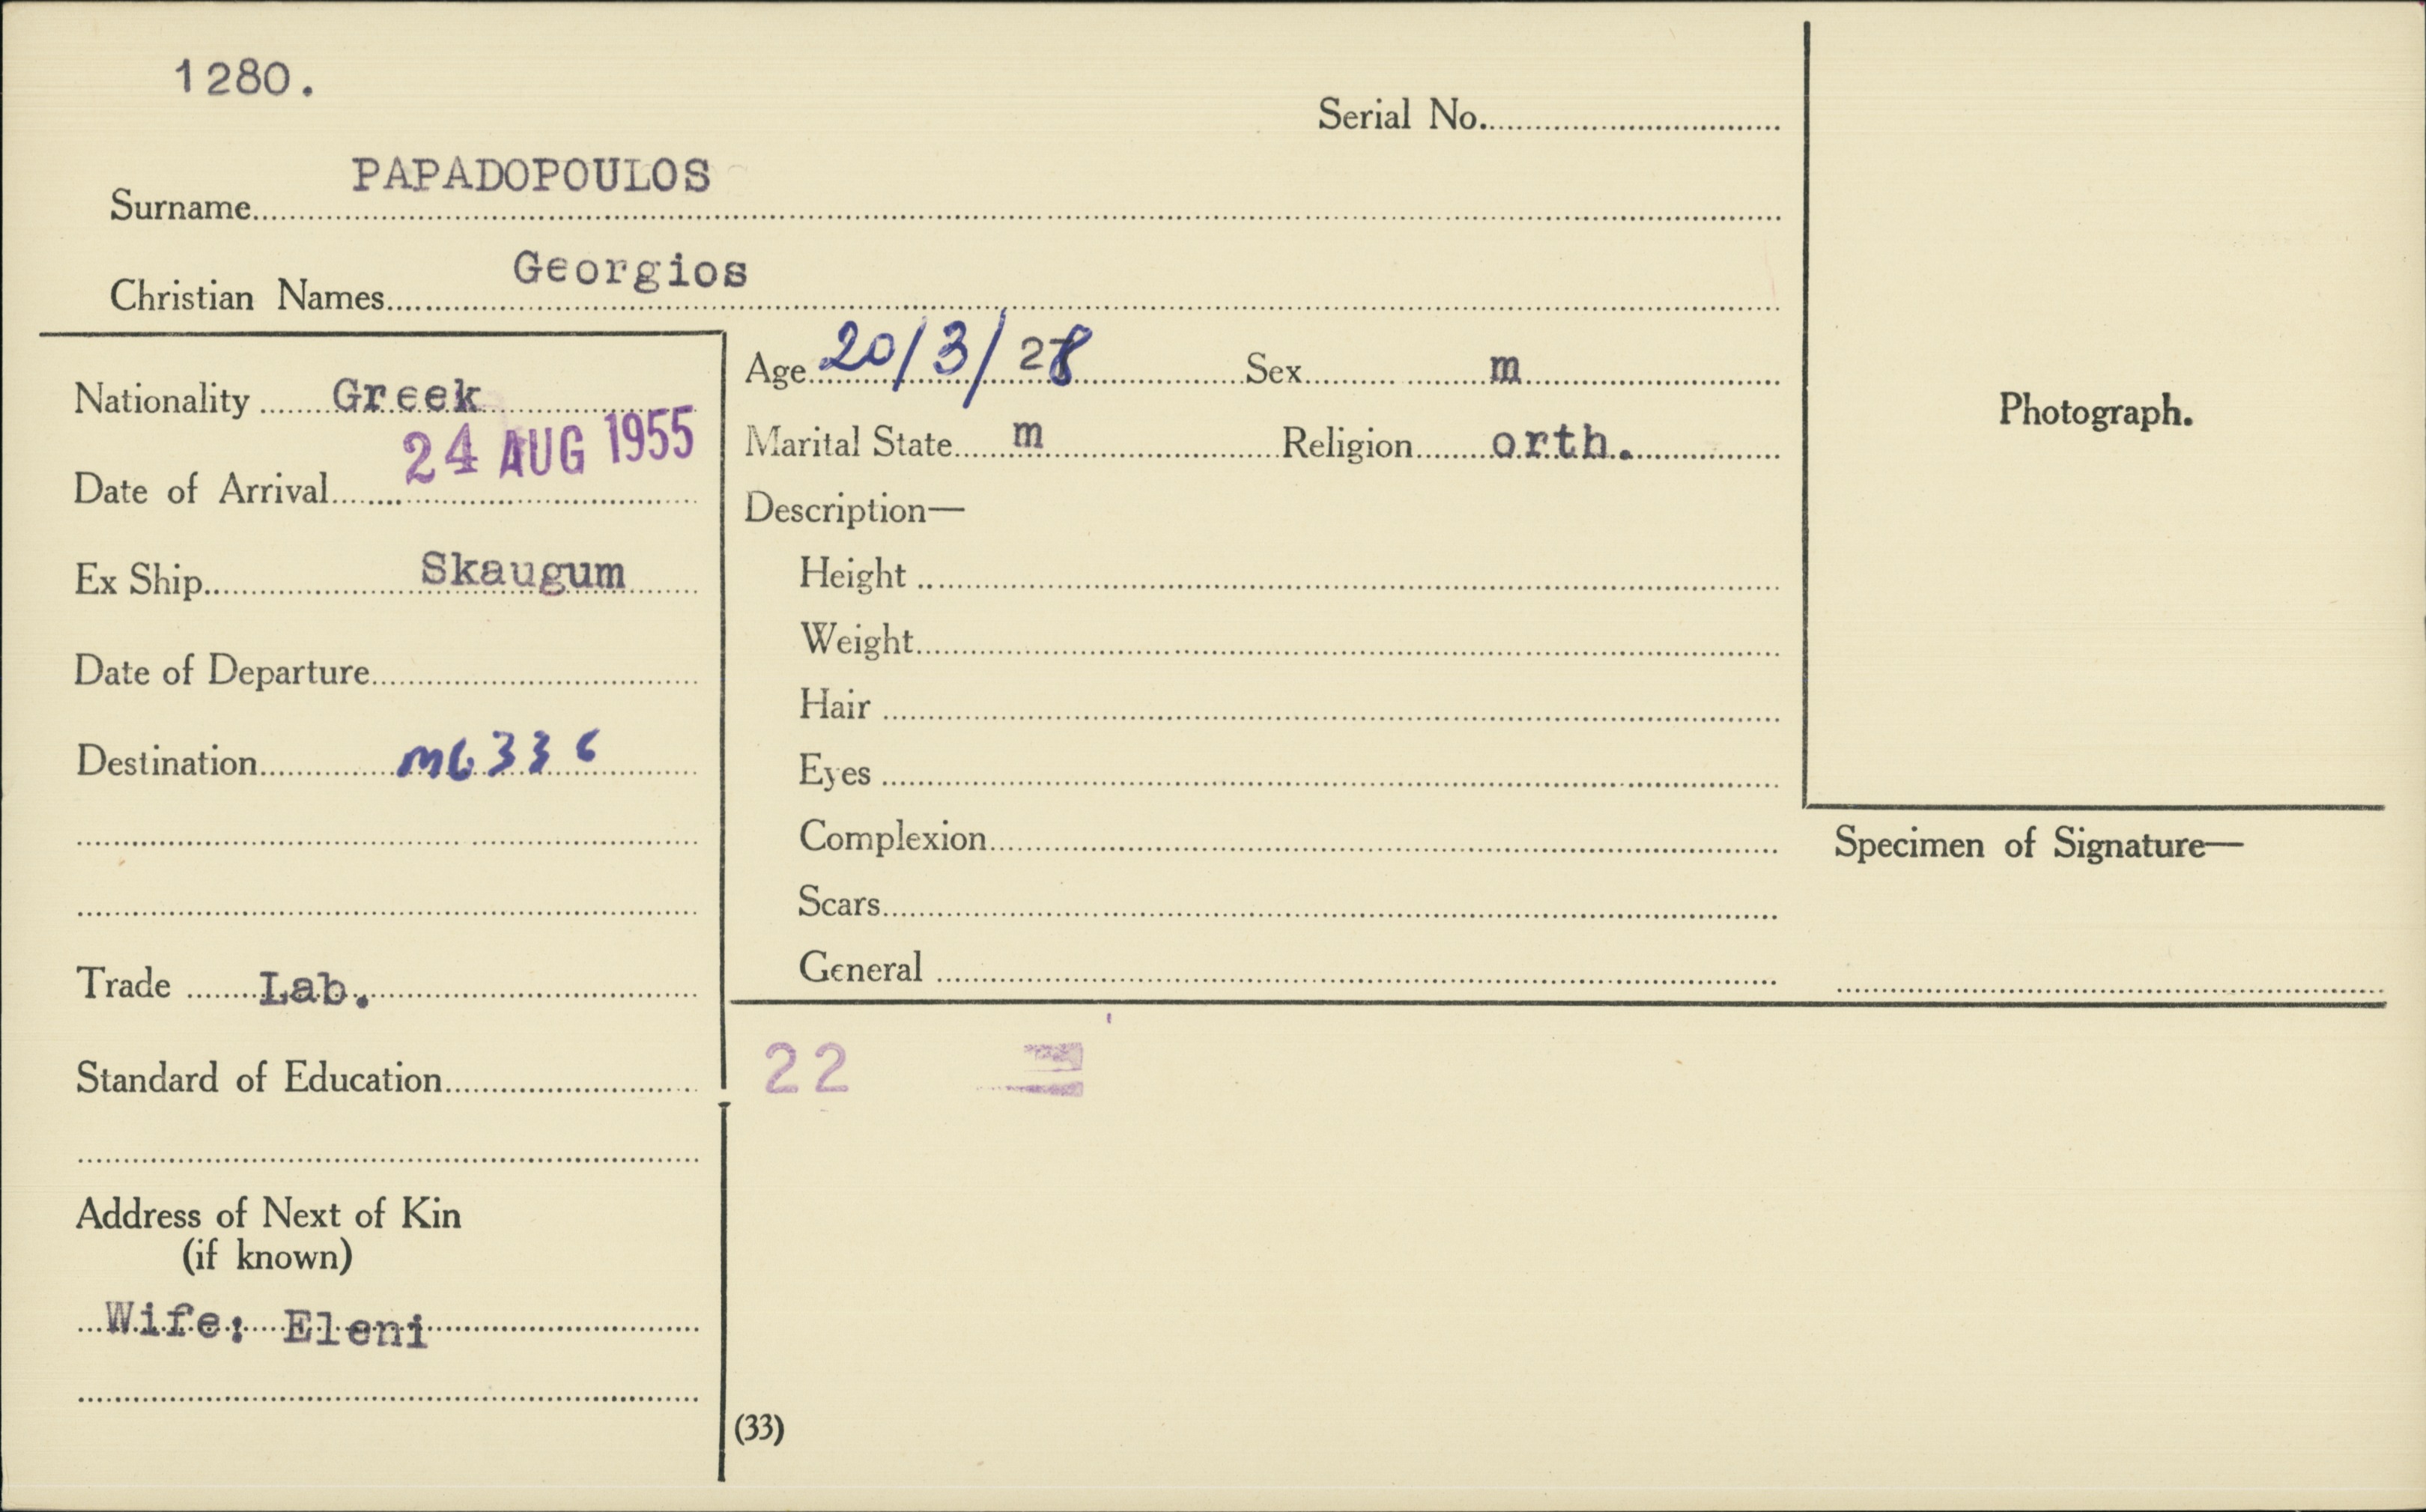 1280.
Serial No.
Surname PAPADOPOULOS
Christian Names Georgios
Nationality Greek
Date of Arrival 24 AUG 1955
Ex Ship Skaugum
Date of Departure
Destination M6336
Trade Lab.
Standard of Education
Address of Next of Kin
(if known)
Wife: Eleni
Age 20/3/28 Sex m
Marital State m Religion orth.
Description—
Height
Weight
Hair
Eyes
Complexion
Scars
General
22
(33)
Photograph.
Specimen of Signature—